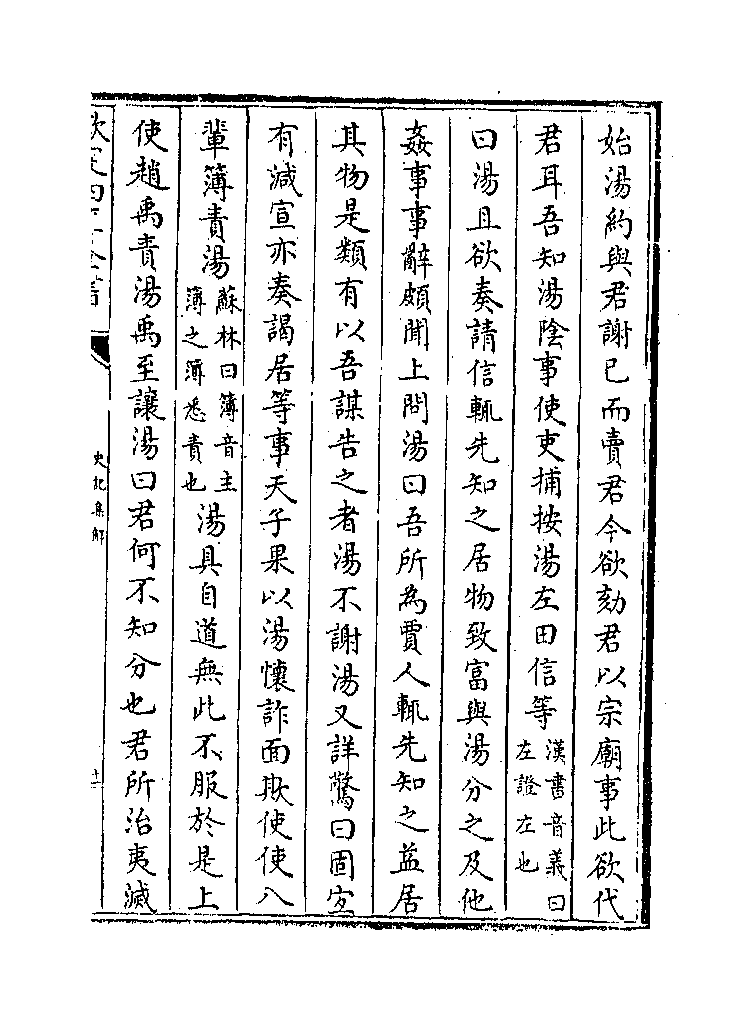 始湯約與君謝已而賣君今欲劾君以宗廟事此欲代
君耳吾知湯陰事使吏捕按湯左田信等漢書音義曰左證左也
曰湯且欲奏請信輒先知之居物致富與湯分之及他
姦事事辭頗聞上問湯曰吾所為賈人輒先知之益居
其物是類有以吾謀告之者湯不謝湯又詳驚曰固宜
有減宣亦奏謁居等事天子果以湯懷詐面欺使使八
輩簿責湯蘇林曰簿音主簿之簿悉責也湯具自道無此不服於是上
使趙禹責湯禹至讓湯曰君何不知分也君所治夷滅
欽定四庫全書
史記集解
十一